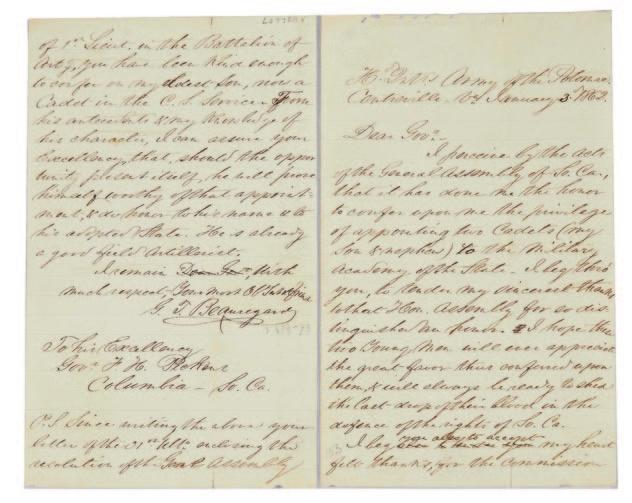 Hd Qrs Army of the Potomac
Centreville Va January 3d 1862.
Dear Govr—
I perceive by the Acts
of the General Assembly of So. Ca.,
that it has done me the honor
to confer upon me the privilege
of appointing two Cadets (my
Son & nephew) to the Military
Academy of the State. I beg thro'
you, to tender my sincerest thanks
to that Hon. Assembly for so dis-
tinguished an honor. I hope the
two young men will ever appreciate
the great favor thus conferred upon
them, & will always be ready to shed
the last drop of their blood in the
defence of the rights of So. Ca.
I beg you also to accept my heart
felt thanks, for the Commission
of 1st Lieut. in the Battalion of
Arty, you have been kind enough
to confer on my eldest Son, now a
Cadet in the C. S. Service. From
his antecedents & my knowledge of
his character, I can assure your
Excellency, that, should the oppor-
tunity present itself, he will prove
himself worthy of that appoint-
ment, & do honor to his name & to
his adopted State. He is already
a good field Artillerist.
I remain Dear Govr, With
much respect, Your most Obt
G. T. Beauregard
To his Excellency
Govr F. H. Pickens
Columbia — So. Ca.
P.S. Since writing the above your
letter of the 31st Ulto. enclosing the
resolution of the Genl Assembly